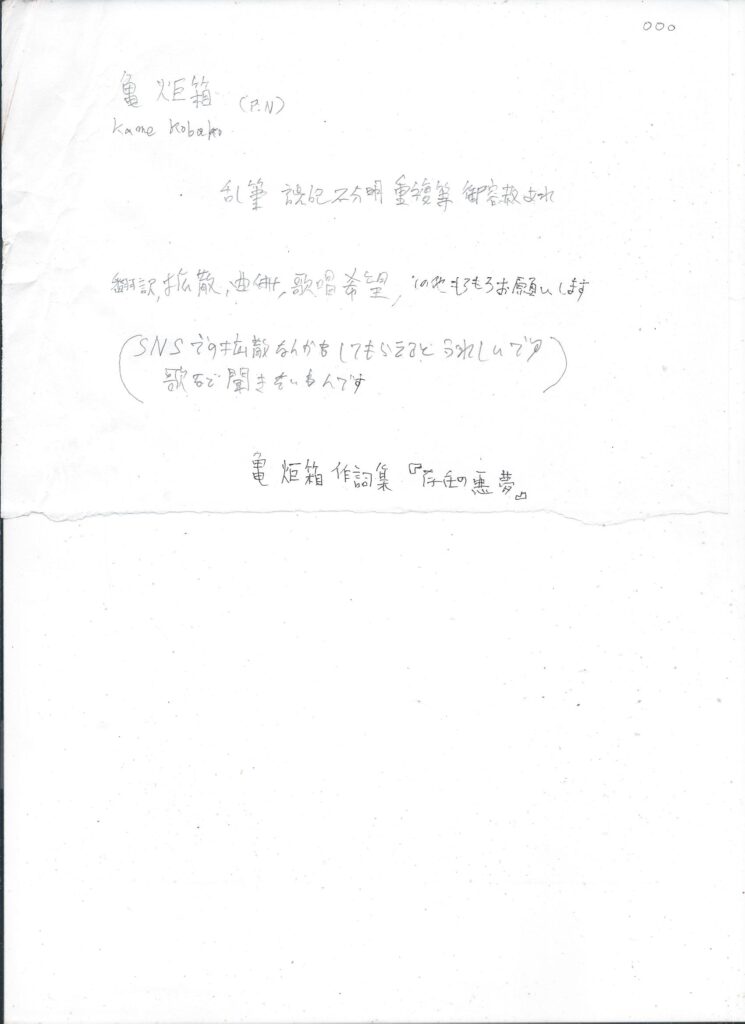 000
亀 炬箱 (P.N)
Kame Kobako
乱筆 誤記 不分明 重複等 御容赦あれ
翻訳,拡散,曲併,歌唱希望,その他もろもろお願いします
(SNSでの拡散なんかもしてもらえるとうれしいです
歌など聞きたいもんです)
亀 炬箱 作詞集『存在の悪夢』